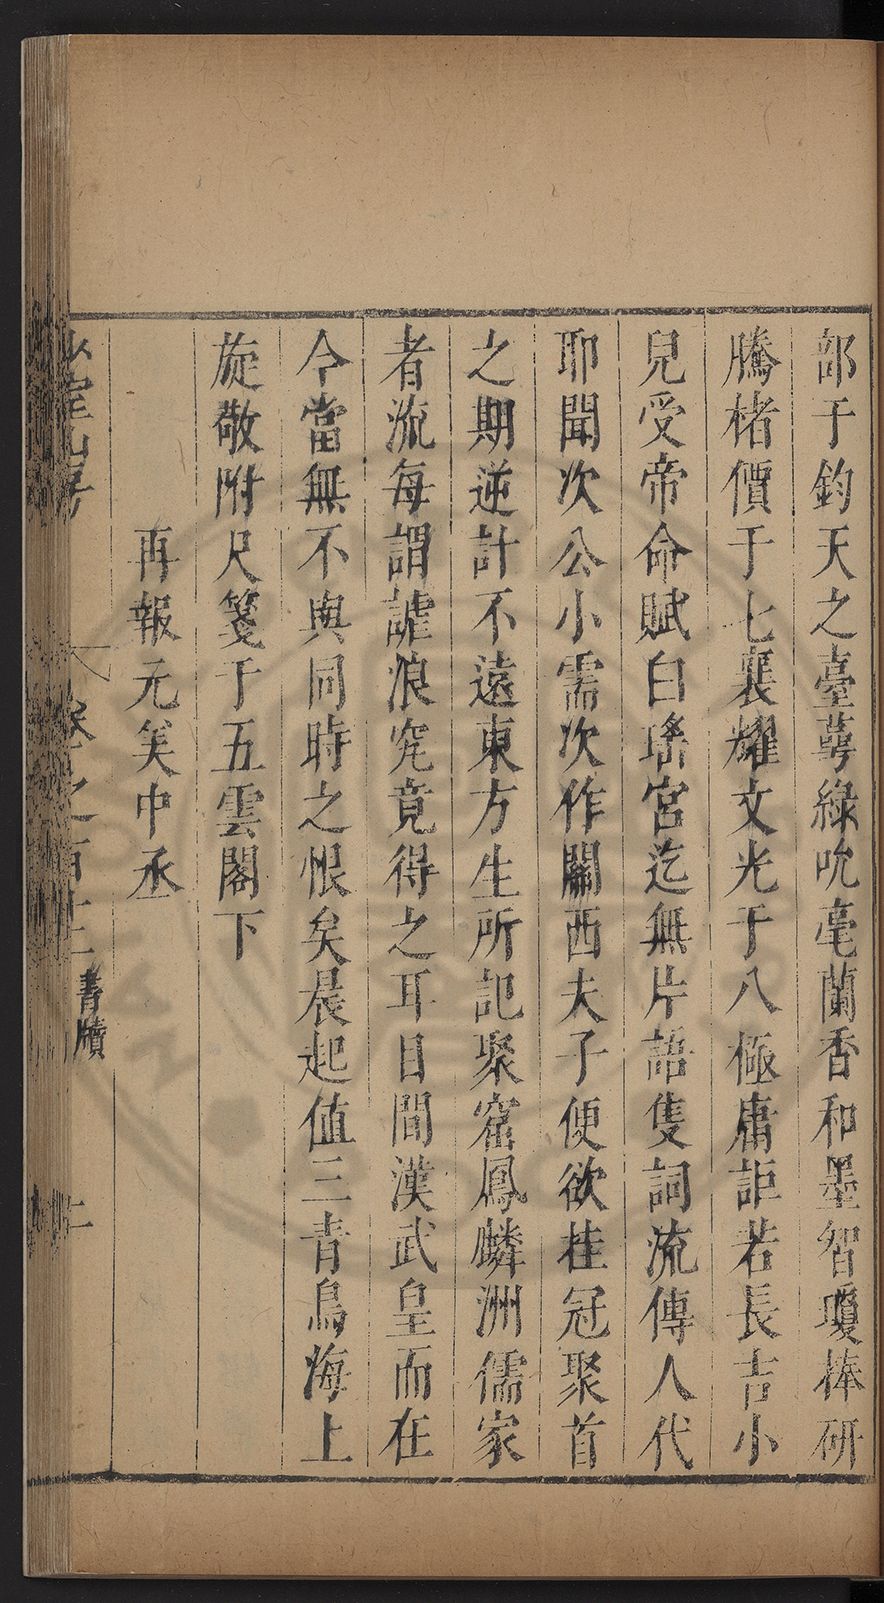 部于鈞天之臺萼綠吮毫蘭香和墨智瓊捧硏
騰楮價于七襄耀文光于八極庸詎若長吉小
兒受帝命賦白瑤宮迄無片語隻詞流傳人代
耶聞次公小需次作關西夫子便欲挂冠聚首
之期逆計不遠東方生所記聚窟鳳麟洲儒家
者流每謂謔浪究竟得之耳目間漢武皇而在
今當無不與同時之恨矣晨起值三青鳥海上
旋敬附尺箋于五雲閣下
再報元美中丞
少室山房
卷之百十
書牘